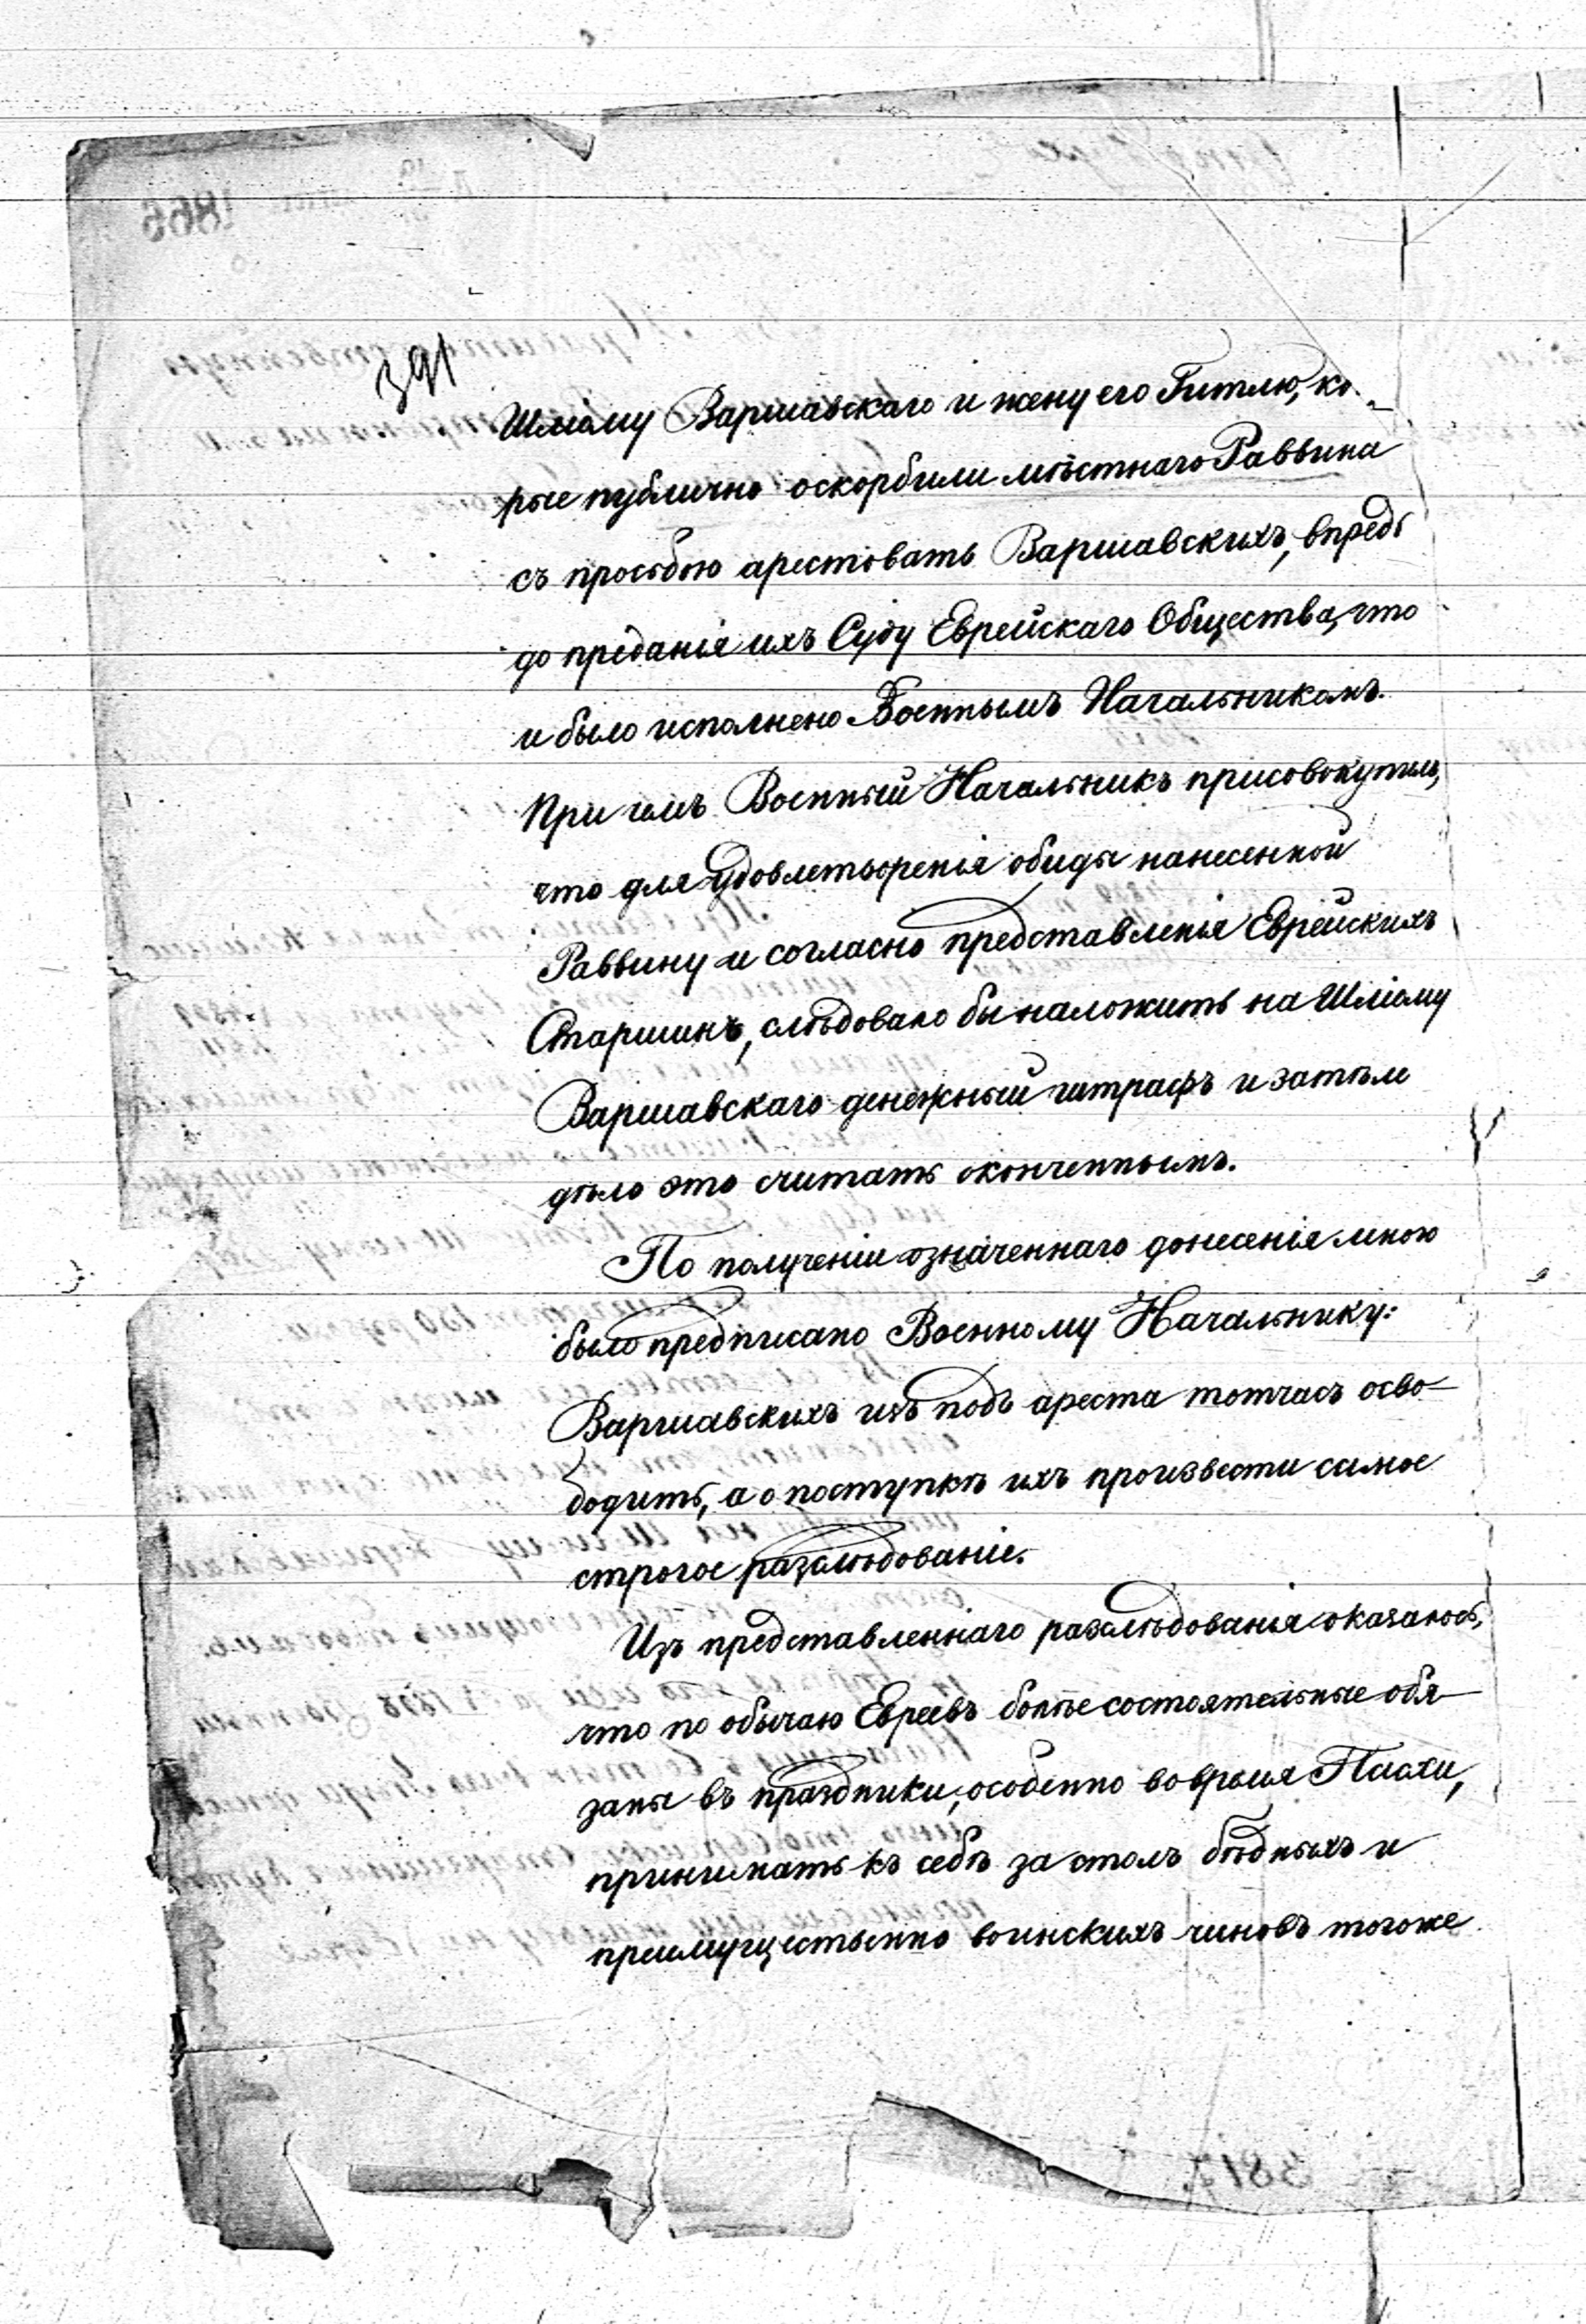 391
Шліому Варшавскаго и жену его Гитлю, ко-
рые публично оскорбили мѣстнаго Раввина
съ просьбою арестовать Варшавскихъ, впредь
до преданія ихъ Суду Еврейскаго Общества, что
и было исполнено Военнымъ Начальникомъ.
При чемъ Военный Начальникъ присовокупилъ,
что для удовлетворенія обиды нанесенной
Раввину и согласно представленія Еврейскихъ
Старшинъ, слѣдовало бы наложить на Шліому
Варшавскаго денежный штрафъ и затѣмъ
дѣло это считать оконченнымъ.
По полученіи означеннаго донесенія мною
было предписано Военному Начальнику:
Варшавскихъ изъ подъ ареста тотчасъ осво-
бодить, а о поступкѣ ихъ произвести самое
строгое разслѣдованіе.
Изъ представленнаго разслѣдованія оказалось,
что по обычаю Евреевъ болѣе состоятельные обя-
заны въ праздники, особенно во время Пасхи,
принимать къ себѣ за столъ бѣдныхъ и
преимущественно воинскихъ чиновъ тогоже